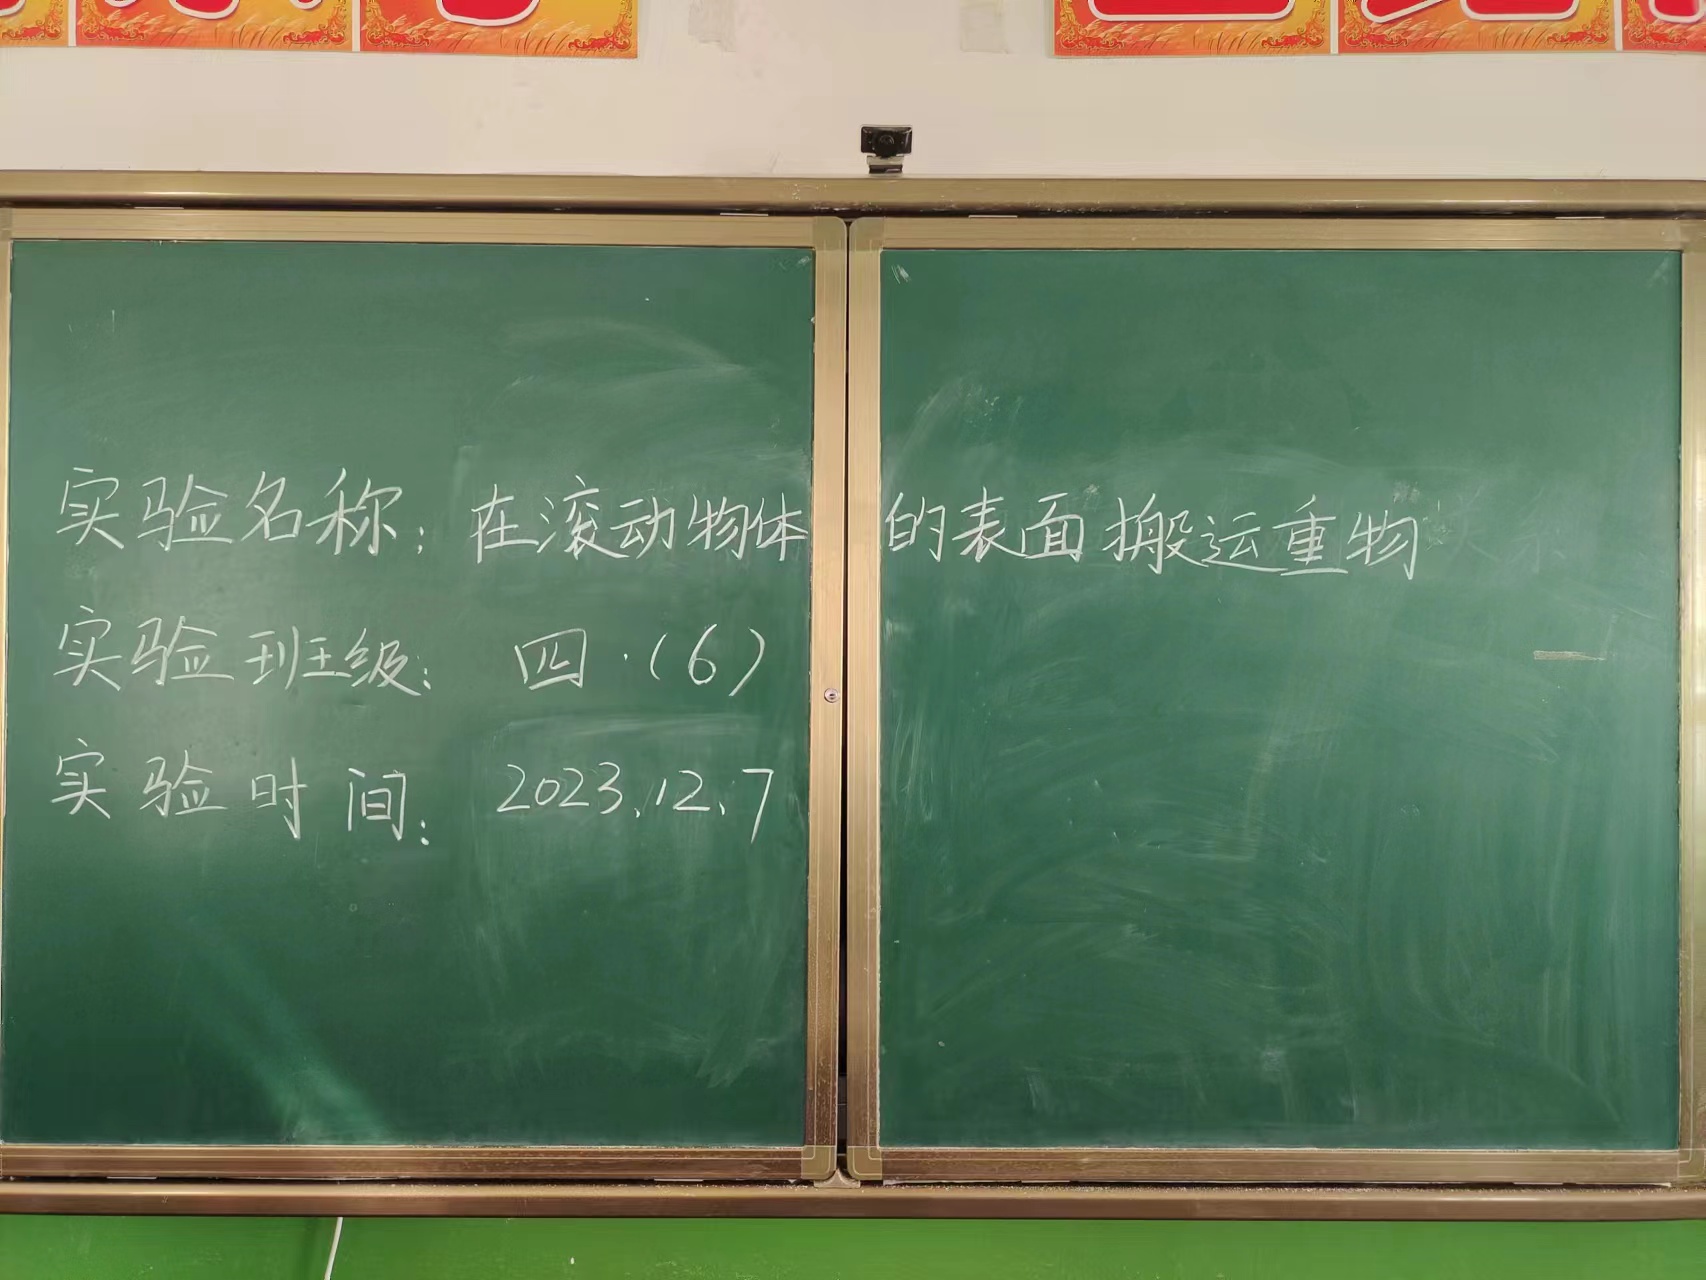 实验名称：在滚动物体的表面搬运重物
实验班级：四·（6）
实验时间：2023.12.7